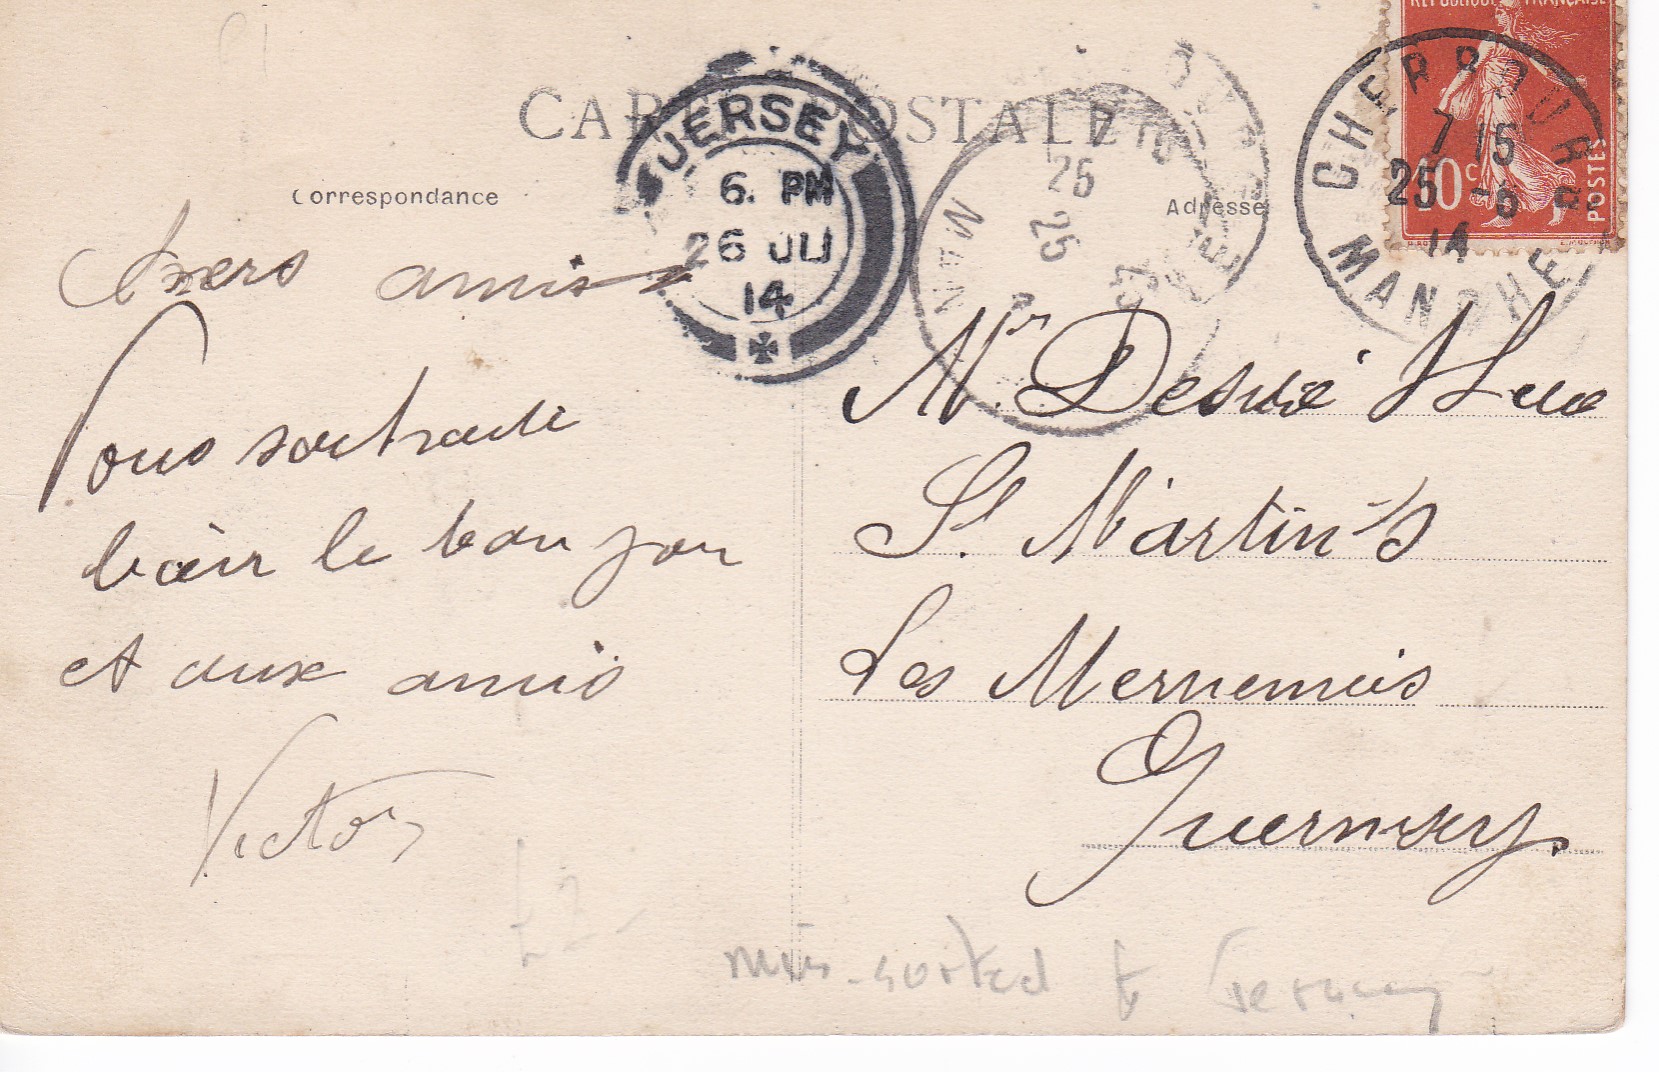 RÉPUBLIQUE FRANÇAISE
10c
POSTES
CHERBOURG
7 15
25 -6
14
MANCHE
CARTE POSTALE
GUERSEY
6. PM
26 JU
14
25
25
MAN
Correspondance
Adresse
Chers amis
Vous souhaite
bein le bon jou
et aux amis
Victor
Mr. Desiré Hue
St. Martin's
Les Mernemuis
Guernsey.
£2-
mis-sorted to Germany